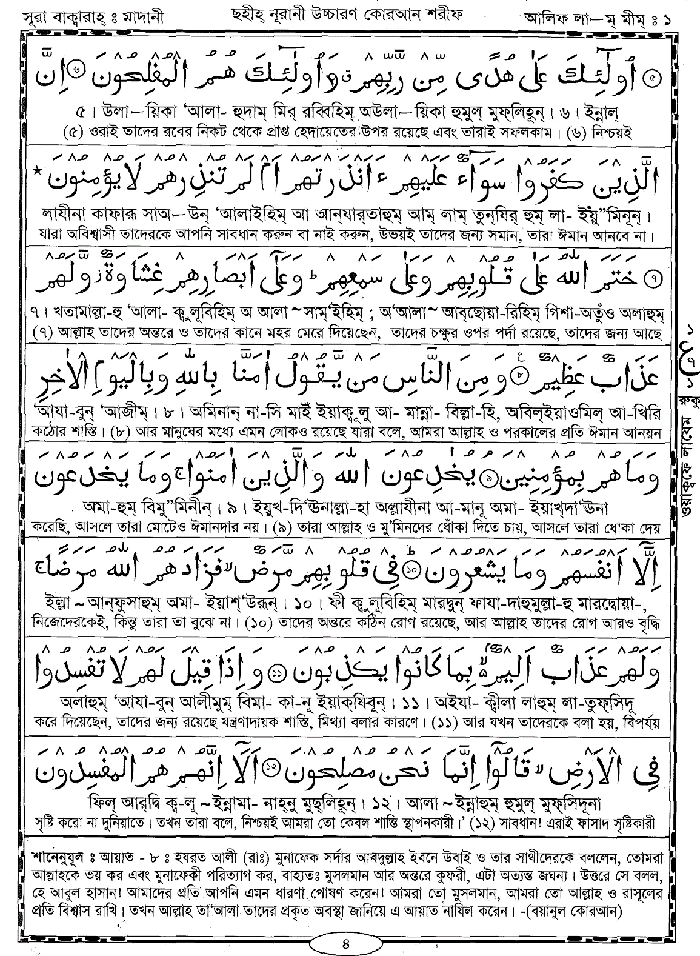 সূরা বাক্বারাহ্ ঃ মাদানী
ছহীহ্ নূরানী উচ্চারণ কোরআন শরীফ
আলিফ লা—ম্ মীম্ ঃ ১
اُولٰٓئِكَ عَلٰى هُدًى مِّنْ رَّبِّهِمْ وَاُولٰٓئِكَ هُمُ الْمُفْلِحُوْنَ ۝ اِنَّ
৫। উলা—য়িকা ‘আলা- হুদাম্ মির্ রব্বিহিম্ অউলা—য়িকা হুমুল্ মুফ্লিহূন্। ৬। ইন্নাল্
(৫) ওরাই তাদের রবের নিকট থেকে প্রাপ্ত হেদায়েতের উপর রয়েছে এবং তারাই সফলকাম। (৬) নিশ্চয়ই
الَّذِيْنَ كَفَرُوْا سَوَآءٌ عَلَيْهِمْ ءَاَنْذَرْتَهُمْ اَمْ لَمْ تُنْذِرْهُمْ لَا يُؤْمِنُوْنَ *
লাযীনা কাফারূ সাঅ—উন্ ‘আলাইহিম্ আ আনযার্তাহুম্ আম্ লাম্ তুন্যির্ হুম্ লা- ইয়ু”মিনূন্।
যারা অবিশ্বাসী তাদেরকে আপনি সাবধান করুন বা নাই করুন, উভয়ই তাদের জন্য সমান, তারা ঈমান আনবে না।
خَتَمَ اللّٰهُ عَلٰى قُلُوْبِهِمْ وَعَلٰى سَمْعِهِمْ ؕ وَعَلٰٓى اَبْصَارِهِمْ غِشَاوَةٌ ز وَّلَهُمْ
৭। খতামাল্লা-হু ‘আলা- ক্বুলূবিহিম্ অ আলা~ সাম্‘ইহিম্ ; অ‘আলা~ আব্ছোয়া-রিহিম্ গিশা-অতুঁও অলাহুম্
(৭) আল্লাহ্ তাদের অন্তরে ও তাদের কানে মহর মেরে দিয়েছেন, তাদের চক্ষুর ওপর পর্দা রয়েছে, তাদের জন্য আছে
عَذَابٌ عَظِيْمٌ ۝ وَمِنَ النَّاسِ مَنْ يَّقُوْلُ اٰمَنَّا بِاللّٰهِ وَبِالْيَوْمِ الْاٰخِرِ
‘আযা-বুন্ ‘আজীম্। ৮। অমিনান্ না-সি মাইঁ ইয়াক্বূলু আ- মান্না- বিল্লা-হি, অবিল্ইয়াওমিল্ আ-খিরি
কঠোর শাস্তি। (৮) আর মানুষের মধ্যে এমন লোকও রয়েছে যারা বলে, আমরা আল্লাহ্ ও পরকালের প্রতি ঈমান আনয়ন
وَمَا هُمْ بِمُؤْمِنِيْنَ ۝ يُخٰدِعُوْنَ اللّٰهَ وَالَّذِيْنَ اٰمَنُوْا ج وَمَا يَخْدَعُوْنَ
অমা-হুম্ বিমু”মিনীন্। ৯। ইয়ুখ-দি‘ঊনাল্লা-হা অল্লাযীনা আ-মানূ অমা- ইয়াখ্দা‘ঊনা
করেছি, আসলে তারা মোটেও ঈমানদার নয়। (৯) তারা আল্লাহ্ ও মু’মিনদের ধোঁকা দিতে চায়, আসলে তারা ধোকা দেয়
اِلَّآ اَنْفُسَهُمْ وَمَا يَشْعُرُوْنَ ۝ فِيْ قُلُوْبِهِمْ مَّرَضٌ لا فَزَادَهُمُ اللّٰهُ مَرَضًا ج
ইল্লা ~ আন্ফুসাহুম্ অমা- ইয়াশ্‘ঊরূন্। ১০। ফী ক্বুলূবিহিম্ মারদ্বুন্ ফাযা-দাহুমুল্লা-হু মারদ্বোয়া-,
নিজেদেরকেই, কিন্তু তারা তা বুঝে না। (১০) তাদের অন্তরে কঠিন রোগ রয়েছে, আর আল্লাহ্ তাদের রোগ আরও বৃদ্ধি
وَلَهُمْ عَذَابٌ اَلِيْمٌۢ ۙ بِمَا كَانُوْا يَكْذِبُوْنَ ۝ وَاِذَا قِيْلَ لَهُمْ لَا تُفْسِدُوْا
অলাহুম্ ‘আযা-বুন্ আলীমুম্ বিমা- কা-নূ ইয়াক্যিবূন্। ১১। অইযা- ক্বীলা লাহুম্ লা-তুফ্সিদূ
করে দিয়েছেন, তাদের জন্য রয়েছে যন্ত্রণাদায়ক শাস্তি, মিথ্যা বলার কারণে। (১১) আর যখন তাদেরকে বলা হয়, বিপর্যয়
فِى الْاَرْضِ لا قَالُوْٓا اِنَّمَا نَحْنُ مُصْلِحُوْنَ ۝ اَلَآ اِنَّهُمْ هُمُ الْمُفْسِدُوْنَ
ফিল্ আর্দ্বি ক্ব-লূ ~ ইন্নামা- নাহ্নু মুছ্লিহূন্। ১২। আলা ~ ইন্নাহুম্ হুমুল্ মুফ্সিদূনা
সৃষ্টি করো না দুনিয়াতে। তখন তারা বলে, নিশ্চয়ই আমরা তো কেবল শান্তি স্থাপনকারী।’ (১২) সাবধান! এরাই ফাসাদ সৃষ্টিকারী
শানেনুযূল ঃ আয়াত - ৮ ঃ হযরত আলী (রাঃ) মুনাফেক সর্দার আবদুল্লাহ্ ইবনে উবাই ও তার সাথীদেরকে বললেন, তোমরা
আল্লাহকে ভয় কর এবং মুনাফেকী পরিত্যাগ কর, বাহ্যতঃ মুসলমান আর অন্তরে কুফরী, এটা অত্যন্ত জঘন্য। উত্তরে সে বলল,
হে আবুল হাসান! আমাদের প্রতি আপনি এমন ধারণা পোষণ করেন! আমরা তো মুসলমান, আমরা তো আল্লাহ ও রাসূলের
প্রতি বিশ্বাস রাখি। তখন আল্লাহ্ তা‘আলা তাদের প্রকৃত অবস্থা জানিয়ে এ আয়াত নাযিল করেন। -(বয়ানুল কোরআন)
রুকু
ওয়াক্ফে লাযেম
৪